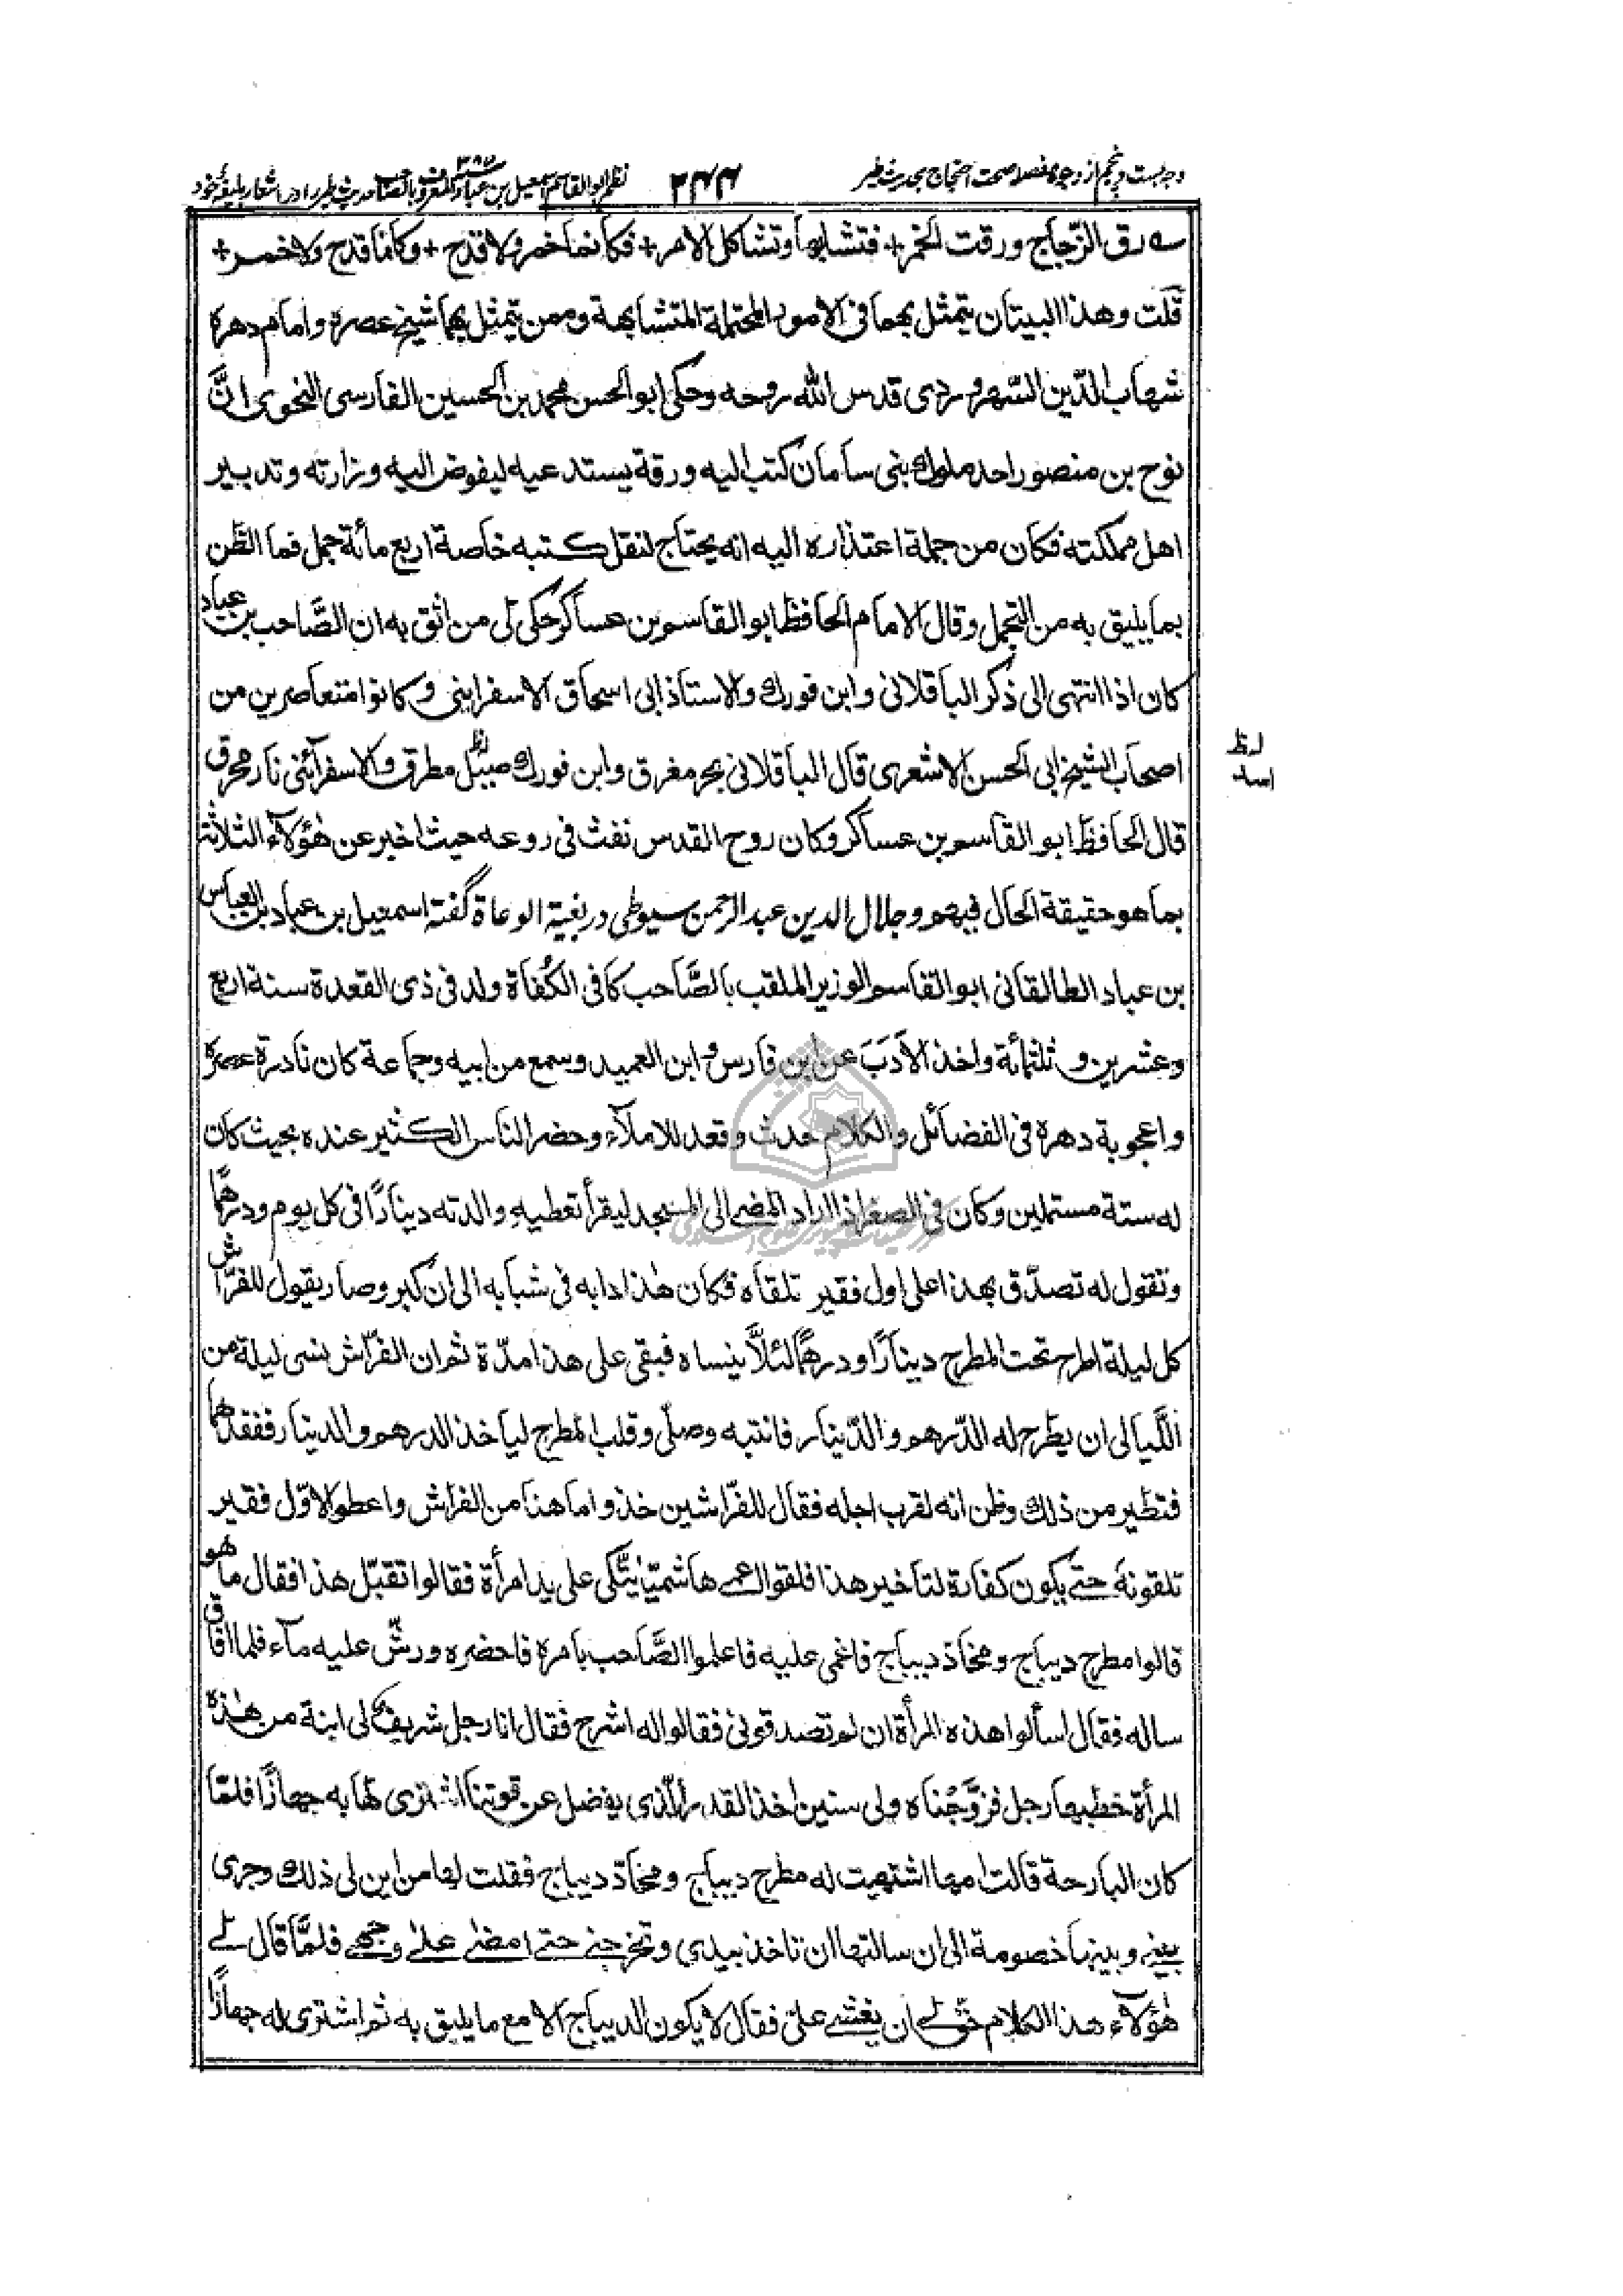 وجه بست و پنجم از وجوه مفصله صحت احتجاج بحدیث طیر
۲۴۴
نظم ابو القاسم اسمعیل بن عباد المعروف بالصاحب حدیث طیر را در اشعار بلیغهٔ خود
۳۸۵
رق الزّجاج ورقت الخمر + فتشابها وتشاكل الامر + فكأنما خمر ولا قدح + وكأنما قدح ولا خمر +
قلت وهذا البيتان يتمثل بهما فى الامور المحتملة المتشابهة وممن يتمثل بهما شيخ عصره وامام دهره
شهاب الدّين السّهروردى قدس الله روحه وحكى ابو الحسن محمد بن الحسين الفارسى النحوى انَّ
نوح بن منصور احد ملوك بنى سامان كتب اليه ورقة يستدعيه ليفوض اليه وزارته وتدبير
اهل مملكته فكان من جملة اعتذاره اليه انه يحتاج لنقل كتبه خاصة اربع مائة جمل فما الظّن
بما يليق به من التجمل وقال الامام الحافظ ابو القاسم بن عساكر حكى لى من اثق به ان الصَّاحب بن عباد
كان اذا انتهى الى ذكر الباقلانى وابن فورك والاستاذ ابى اسحاق الاسفراينى وكانوا متعاصرين من
اصحاب الشيخ ابى الحسن الاشعرى قال الباقلانى بحر مغرق وابن فورك صيل مطرق والاسفرآئنى نار محرق
قال الحافظ ابو القاسم بن عساكر وكان روح القدس نفث فى روعه حيث اخبر عن هٰؤلآء الثلاثة
بما هو حقيقة الحال فيهم وجلال الدين عبد الرحمن سيوطى در بغية الوعاة گفته اسمعيل بن عباد بن العباس
بن عباد الطالقانى ابو القاسم الوزير الملقب بالصَّاحب كافى الكُفاة ولد فى ذى القعدة سنة اربع
وعشرين و ثلثمائة واخذ الأدَبَ عن ابن فارس وابن العميد وسمع من ابيه وجماعة كان نادرة عصره
واعجوبة دهره فى الفضآئل والكلام حدث وقعد للاملآء وحضر الناس الكثير عنده بحيث كان
له ستة مستملين وكان فى الصغر اذا اراد المضى الى المسجد ليقرأ تعطيه والدته دينارًا فى كل يوم ودرهمًا
وتقول له تصدّق بهذا على اول فقير تلقاه فكان هٰذا دابه فى شبابه الى ان كبر وصار يقول للفرّاش
كل ليلة اطرح تحت المطرح دينارًا ودرهمًا لئلاَّ ينساه فبقى على هذا مدّة ثم ان الفرّاش نسى ليلة من
اللَّيالى ان يطرح له الدّرهم والدّينار فانتبه وصلّى وقلب المطرح لياخذ الدرهم والدينار ففقدهما
فتطير من ذلك وظن انه لقرب اجله فقال للفرّاشين خذوا ما هنا من الفراش واعطوه لاوّل فقير
تلقونهٗ حتى يكون كفارة لتاخير هذا فلقوا اعمى هاشميّا يتّكى على يد امرأة فقالوا تقبّل هذا فقال ما هو
قالوا مطرح ديباج ومخادّ ديباج فاغمى عليه فاعلموا الصَّاحب بامره فاحضره ورشّ عليه مآء فلما افاق
ساله فقال اسألوا هذه المرأة ان لم تصدقونى فقالوا له اشرح فقال انا رجل شريف لى ابنة من هٰذه
المرأة خطبها رجل فزوَّجناه ولى سنين اخذ القدر الّذى يفضل عن قوتنا اشترى لها به جهازًا فلمّا
كان البارحة قالت امها اشتهيت له مطرح ديباج ومخادّ ديباج فقلت لها من اين لى ذلك وجرى
بينى وبينها خصومة الى ان سالتها ان تاخذ بيدى وتخرجنى حتى امضى على وجهى فلمَّا قال لى
هٰؤلآء هذا الكلام حق لى ان يغشى علىّ فقال لا يكون الديباج الا مع ما يليق به ثم اشترى له جهازًا